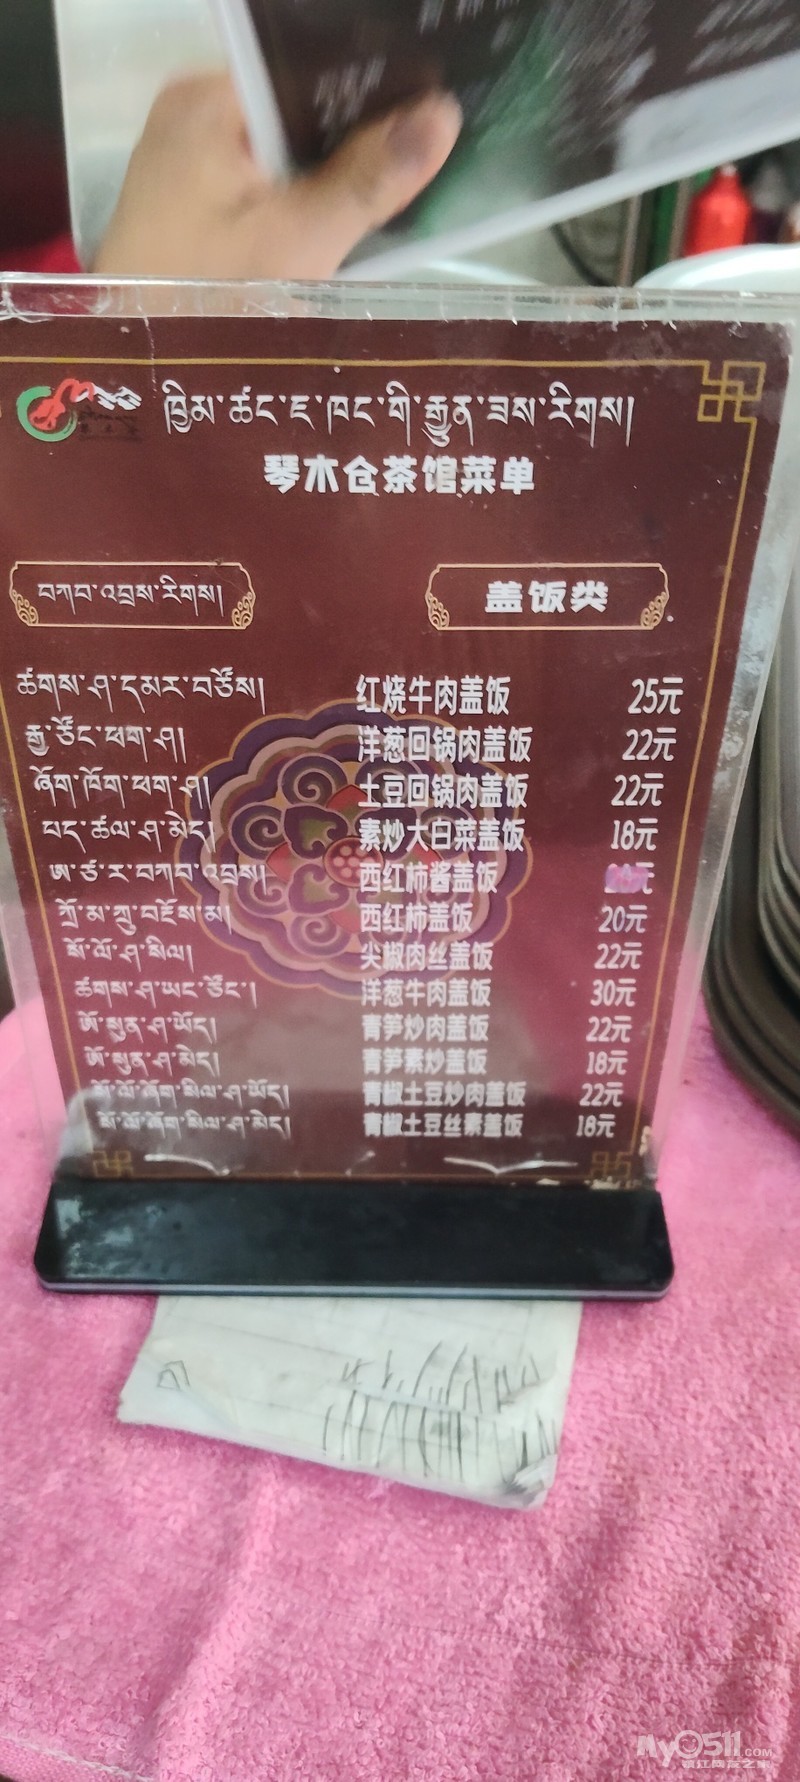 ཁྱིམ་ཚང་ཇ་ཁང་གི་རྒྱུན་ཟས་རིགས།
琴木仓茶馆菜单
བཀབ་འབྲས་རིགས། 盖饭类
ཚགས་ཤ་དམར་བཙོས། 红烧牛肉盖饭 25元
རྒྱ་ཙོང་ཕག་ཤ། 洋葱回锅肉盖饭 22元
ཞོག་ཁོག་ཕག་ཤ། 土豆回锅肉盖饭 22元
པད་ཚལ་ཤ་མེད། 素炒大白菜盖饭 18元
ཨ་ཙ་ར་བཀབ་འབྲས། 西红柿酱盖饭 元
ཀྲོ་མ་ཀྲུ་བརྔོས་མ། 西红柿盖饭 20元
སོ་ལོ་ཤ་སིལ། 尖椒肉丝盖饭 22元
ཚགས་ཤ་ཡང་ཙོང་། 洋葱牛肉盖饭 30元
ཨོ་སུན་ཤ་ཡོད། 青笋炒肉盖饭 22元
ཨོ་སུན་ཤ་མེད། 青笋素炒盖饭 18元
སོ་ལོ་ཞོག་སིལ་ཤ་ཡོད། 青椒土豆炒肉盖饭 22元
སོ་ལོ་ཞོག་སིལ་ཤ་མེད། 青椒土豆丝素盖饭 18元
My0511.COM
镇江网友之家